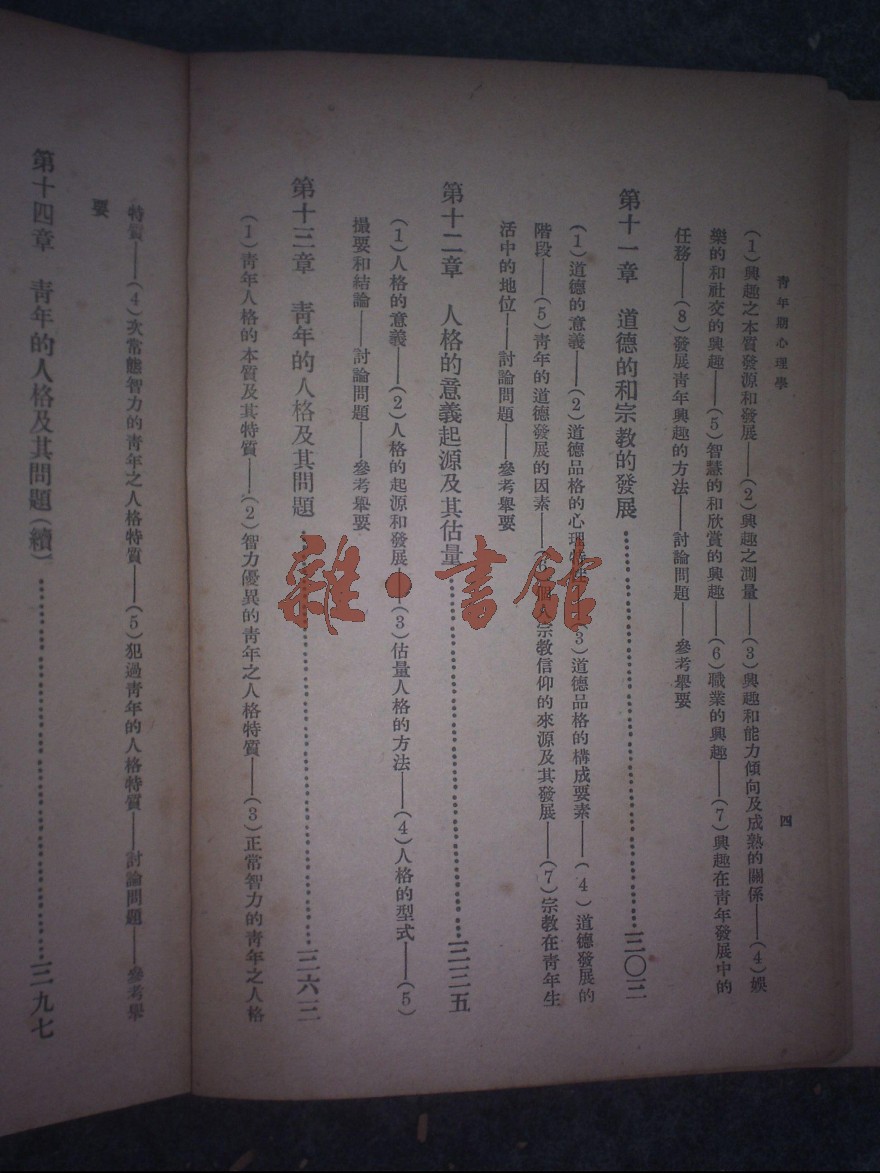 青年期心理學
四
(1)興趣之本質發源和發展——(2)興趣之測量——(3)興趣和能力傾向及成熟的關係——(4)娛
樂的和社交的興趣——(5)智慧的和欣賞的興趣——(6)職業的興趣——(7)興趣在青年發展中的
任務——(8)發展青年興趣的方法——討論問題——參考舉要
第十一章 道德的和宗教的發展……三〇三
(1)道德的意義——(2)道德品格的心理 (3)道德品格的構成要素——(4)道德發展的
階段——(5)青年的道德發展的因素—— 宗教信仰的來源及其發展——(7)宗教在青年生
活中的地位——討論問題——參考舉要
第十二章 人格的意義起源及其估量……三三五
(1)人格的意義——(2)人格的起源和發展——(3)估量人格的方法——(4)人格的型式——(5)
撮要和結論——討論問題——參考舉要
第十三章 青年的人格及其問題……三六三
(1)青年人格的本質及其特質——(2)智力優異的青年之人格特質——(3)正常智力的青年之人格
特質——(4)次常態智力的青年之人格特質——(5)犯過青年的人格特質——討論問題——參考舉
要
第十四章 青年的人格及其問題(續)……三九七
雜·書館